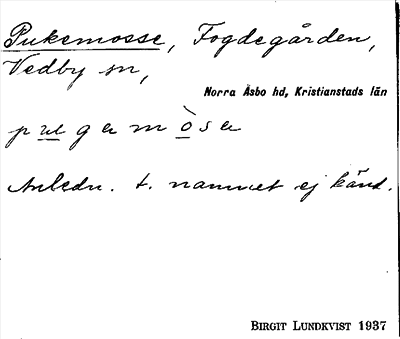 Pukemosse, Fogdegården,
Vedby sn,
Norra Åsbo hd, Kristianstads län
p u g a m ò s a
Anledn. t. namnet ej känd.
BIRGIT LUNDKVIST 1937